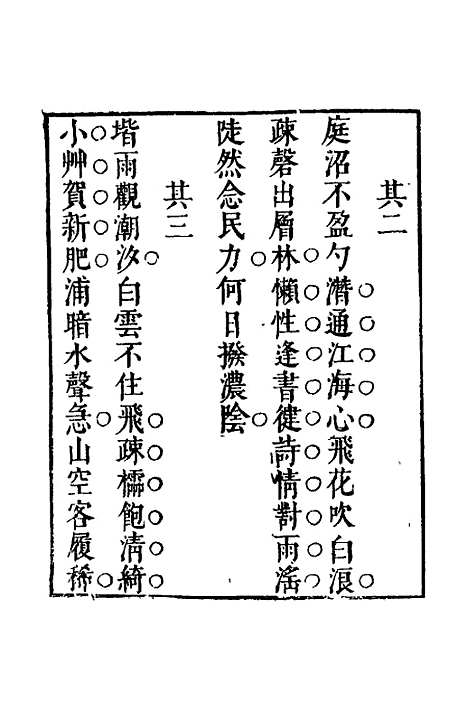 其二
庭沼不盈勺潛通江海心飛花吹白浪
疎磬出層林懶性逢書健詩情對雨滛
陡然念民力何日撥濃陰
其三
堦雨觀潮汐白雲不住飛疎櫺飽淸綺
小艸賀新肥浦暗水聲急山空客履稀